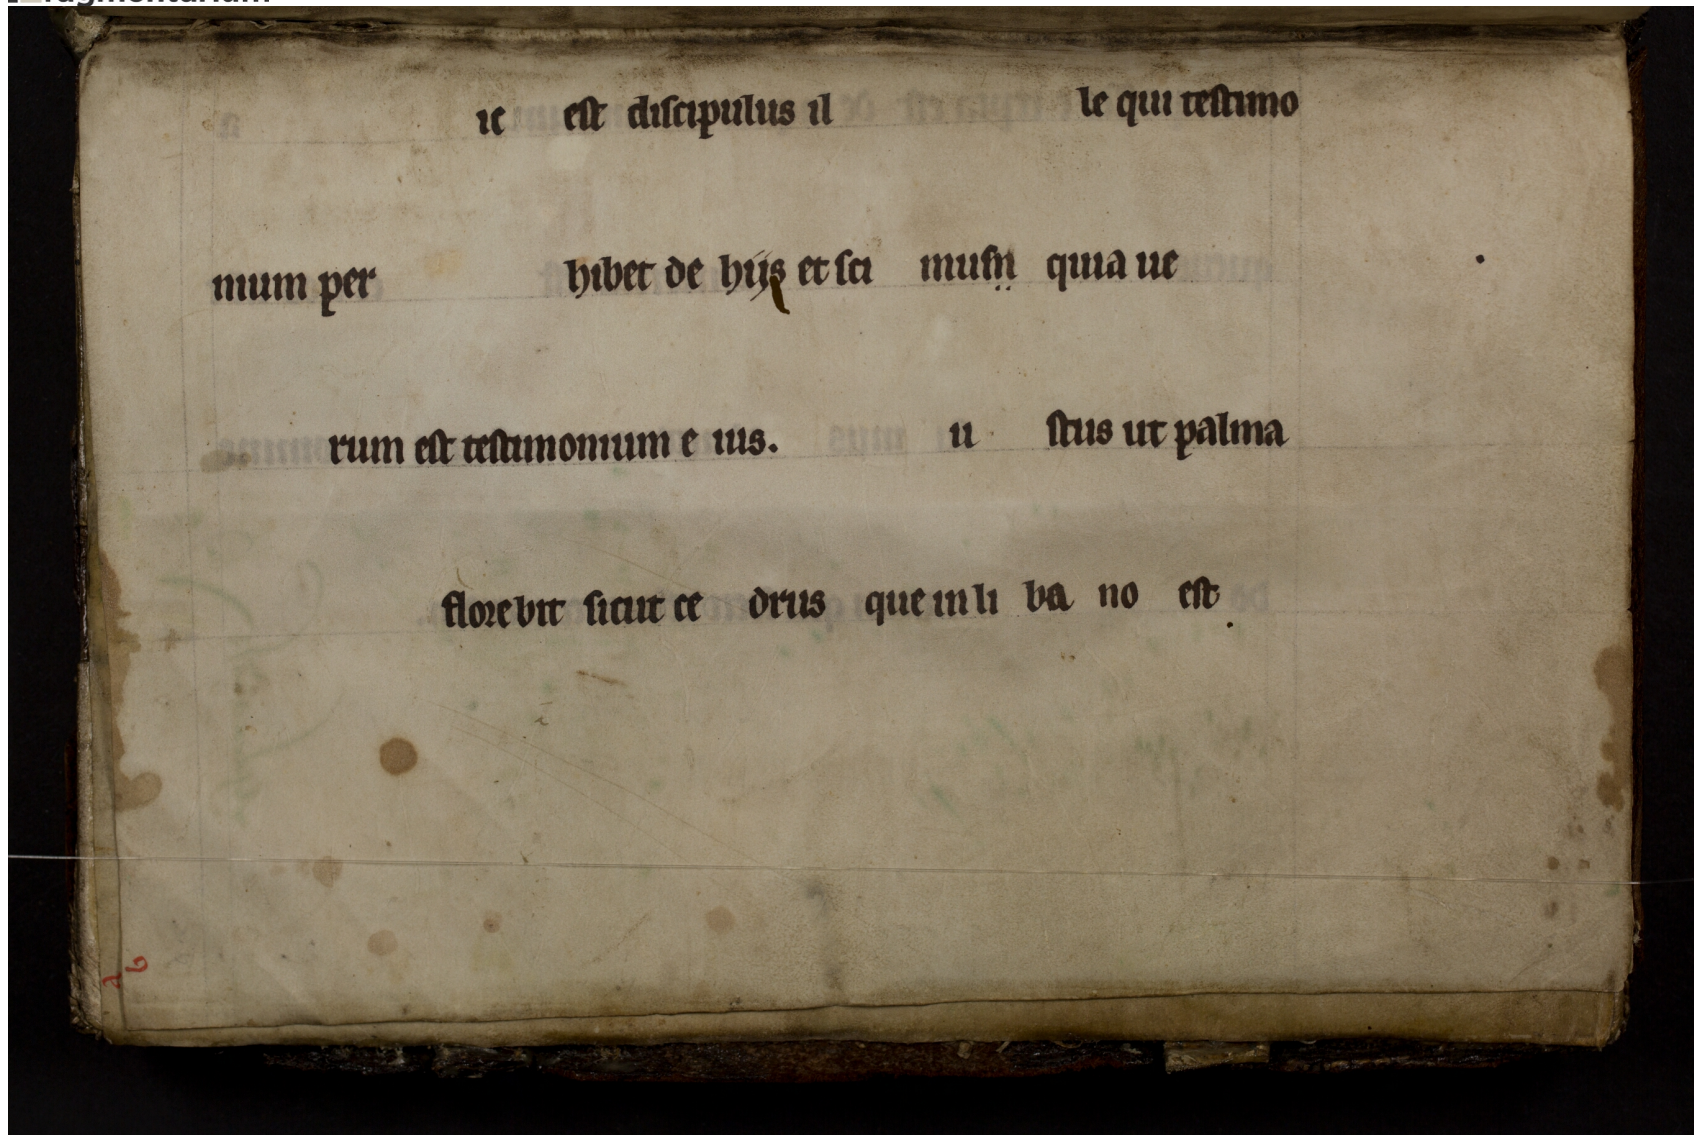 ic est discipulus il le qui testimo
nium per hibet de hijs et sci musn quia ue
rum est testimonium e ius. u stus ut palma
florebit sicut ce drus que in li ba no est
a b